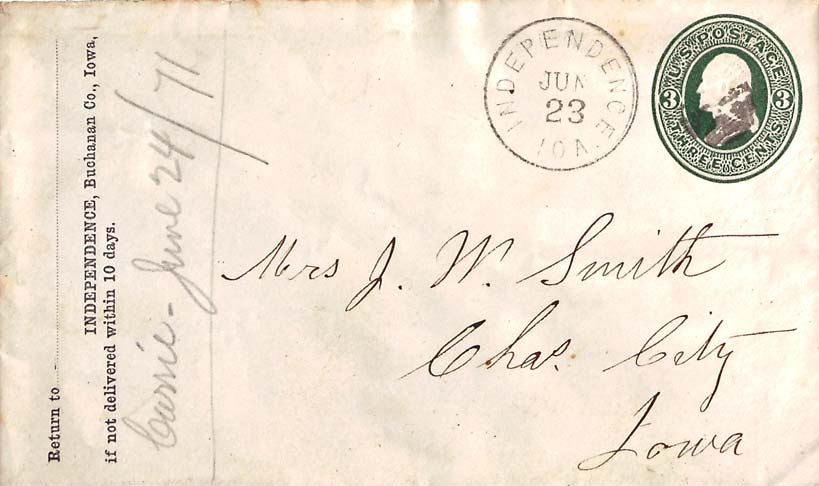 Return to
INDEPENDENCE, Buchanan Co., Iowa,
if not delivered within 10 days.
Carrie - June 24/71
INDEPENDENCE
JUN
23
IOA.
U.S. POSTAGE
3 3
THREE CENTS
Mrs J. W. Smith
Chas. City
Iowa